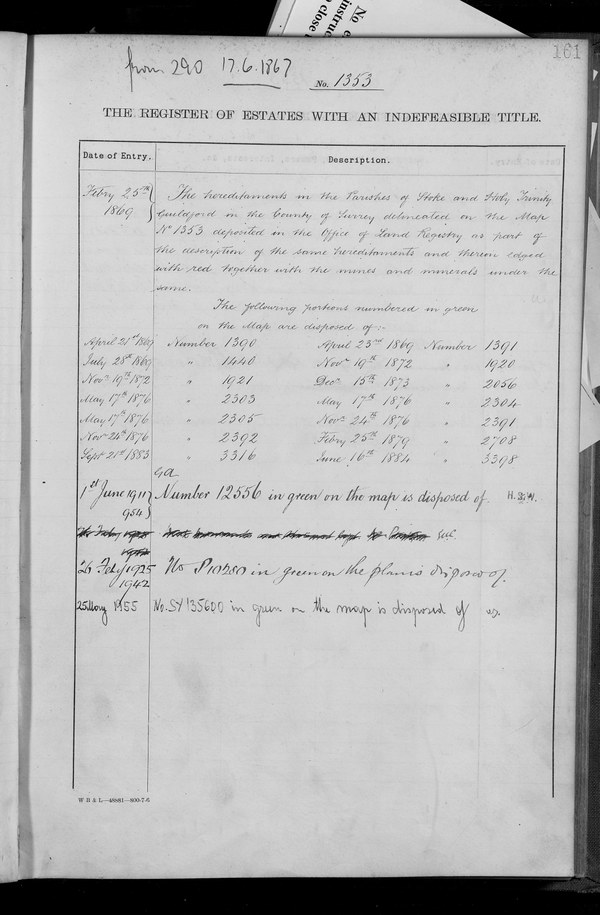 No
instruc
to close
161
from 290 17.6.1867
No. 1353
THE REGISTER OF ESTATES WITH AN INDEFEASIBLE TITLE.
Date of Entry. Description.
Febry 25th 1869 The hereditaments in the Parishes of Stoke and Holy Trinity
Guildford in the County of Surrey delineated on the Map
No 1353 deposited in the Office of Land Registry as part of
the description of the same hereditaments and therein edged
with red together with the mines and minerals under the
same.
The following portions numbered in green
on the Map are disposed of:-
April 21st 1869 Number 1390 April 23rd 1869 Number 1391
July 28th 1869 " 1440 Novr 19th 1872 " 1920
Novr 19th 1872 " 1921 Decr 15th 1873 " 2056
May 17th 1876 " 2303 May 17th 1876 " 2304
May 17th 1876 " 2305 Novr 24th 1876 " 2391
Novr 24th 1876 " 2392 Febry 25th 1879 " 2708
Sept 21st 1883 " 3316 June 16th 1884 " 3398
1st June 1911 Number 12556 in green on the map is disposed of H.W.
954
26 Feby 1925 No P10280 in green on the plan is disposed of.
1942
25 May 1955 No. SY 135600 in green on the map is disposed of
W B & L—48881—800-7-6